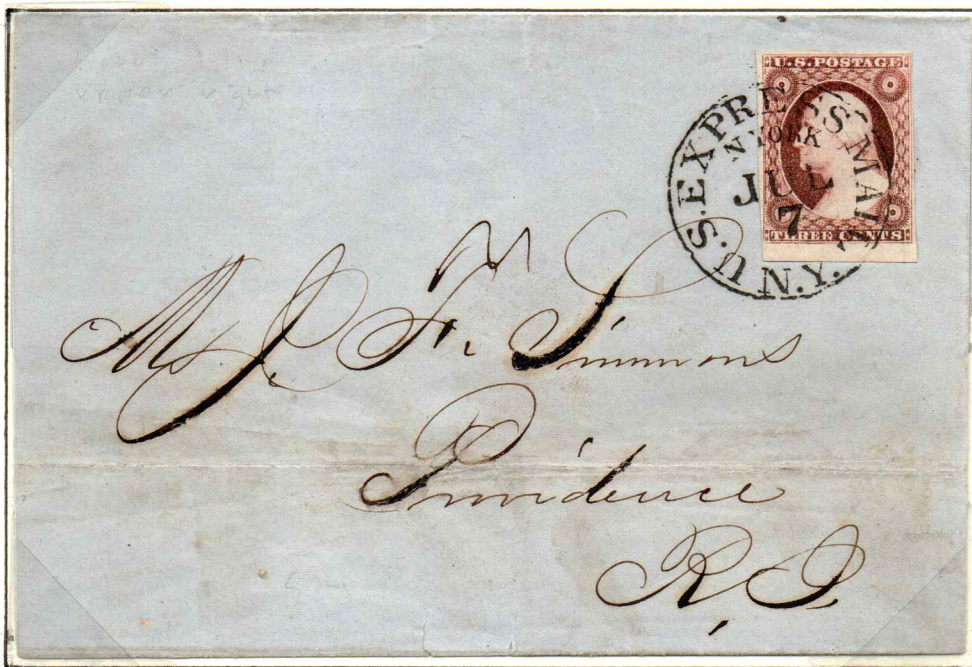 U.S. POSTAGE
THREE CENTS
U.S. EXPRESS MAIL
N YORK
JUL
7
N.Y.
Mr J. F. Simmons
Providence
R. I.